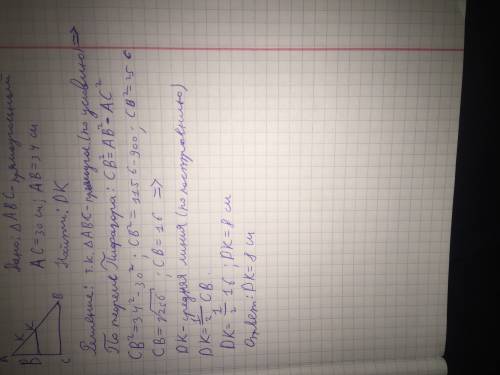 Дано: △ABC - прямоугольный
AC=30 см; AB=34 см
Найти: DK
A
K
K
D
C
B
Решение: т.к. △ABC - прямоуг (по условию) =>
По теореме Пифагора: CB²=AB²-AC²
CB²=34²-30²; CB²=1156-900; CB²=256
CB=√256; CB=16 =>
DK - средняя линия (по построению)
DK=1/2 CB.
DK=1/2 16; DK=8 см
Ответ: DK=8 см